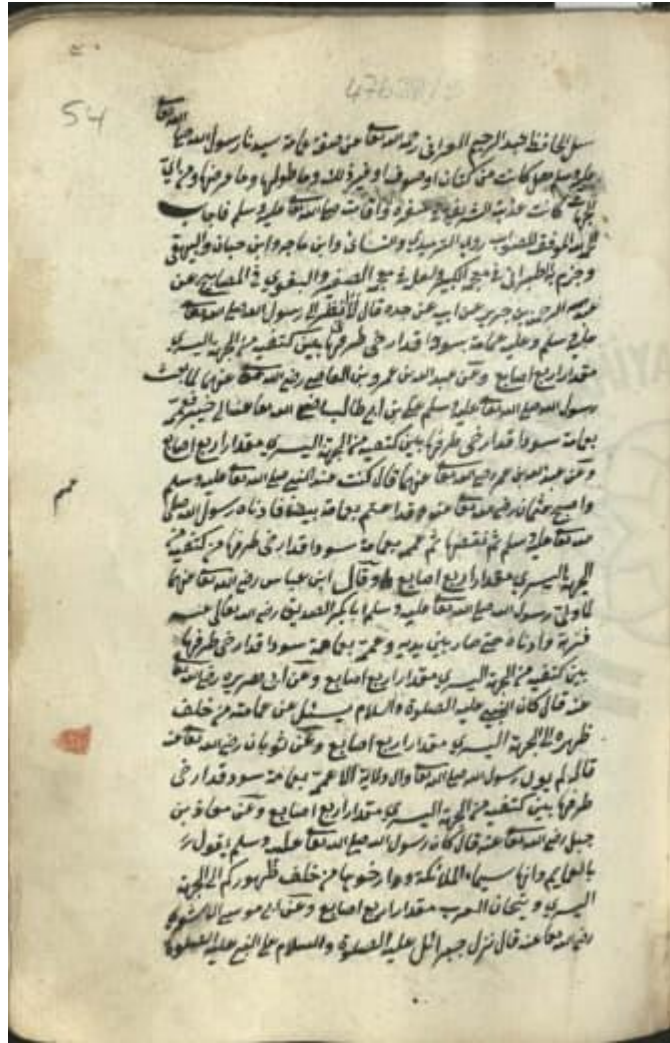 54
سئل الحافظ عبد الرحيم العراقي رحمه الله تعالى عن صفة عمامة سيدنا رسول الله صلى الله تعالى
عليه وسلم هل كانت من كتان او صوف او غير ذلك وما طولها وما عرضها ومن اي
الجهات كانت عذبته الشريفة في سفره واقامته صلى الله تعالى عليه وسلم فاجاب
الله الموفق للصواب روى الترمذي والنسائي وابن ماجه وابن حبان والبيهقي
وجزم به الطبراني في معجمه الكبير في معجمه الصغير والبغوي في المصابيح عن
عبد الرحمن بن عن ابيه عن جده قال انظر الى رسول الله صلى الله تعالى
عليه وسلم وعليه عمامة سودا قد ارخى طرفها بين كتفيه من الجهة اليسرى
مقدار اربع اصابع وعن عبد الله بن عمرو بن العاصي رضي الله تعالى عنهما لما بعث
رسول الله صلى الله تعالى عليه وسلم علي بن ابي طالب رضي الله تعالى عنه الى خيبر عممه
بعمامة سودا قد ارخى طرفها بين كتفيه من الجهة اليسرى مقدار اربع اصابع
وعن عبد الله بن عمر رضي الله تعالى عنهما قال كنت عند النبي صلى الله تعالى عليه وسلم
واصبح عثمان رضي الله تعالى عنه وقد اعتم بعمامة بيضا فادناه رسول الله صلى
الله تعالى عليه وسلم ثم نقضها ثم عممه بعمامة سودا قد ارخى طرفها من كتفيه من
الجهة اليسرى مقدار اربع اصابع وقال ابن عباس رضي الله تعالى عنهما
لما ولى رسول الله صلى الله تعالى عليه وسلم ابا بكر الصديق رضي الله تعالى عنه
قربه وادناه حتى صار بين يديه وعممه بعمامة سودا قد ارخى طرفها
بين كتفيه من الجهة اليسرى مقدار اربع اصابع وعن ابي هريرة رضي الله تعالى
عنه قال كان النبي عليه الصلوة والسلام يسبل من عمامته من خلف
ظهره الى الجهة اليسرى مقدار اربع اصابع وعن ثوبان رضي الله تعالى عنه
قال لم يول رسول الله صلى الله تعالى وال ولاية الا عممه بعمامة سود قد ارخى
طرفها بين كتفيه من الجهة اليسرى مقدار اربع اصابع وعن معاذ بن
جبل رضي الله تعالى عنه قال كان رسول الله صلى الله تعالى عليه وسلم يقول
بالعمايم وانها سيماء الملائكة وارخوها من خلف ظهوركم الى الجهة
اليسرى وتيجان العرب مقدار اربع اصابع وعن ابي موسى الاشعري
رضي الله تعالى عنه قال نزل جبرائل عليه الصلوة والسلام على النبي عليه الصلوة